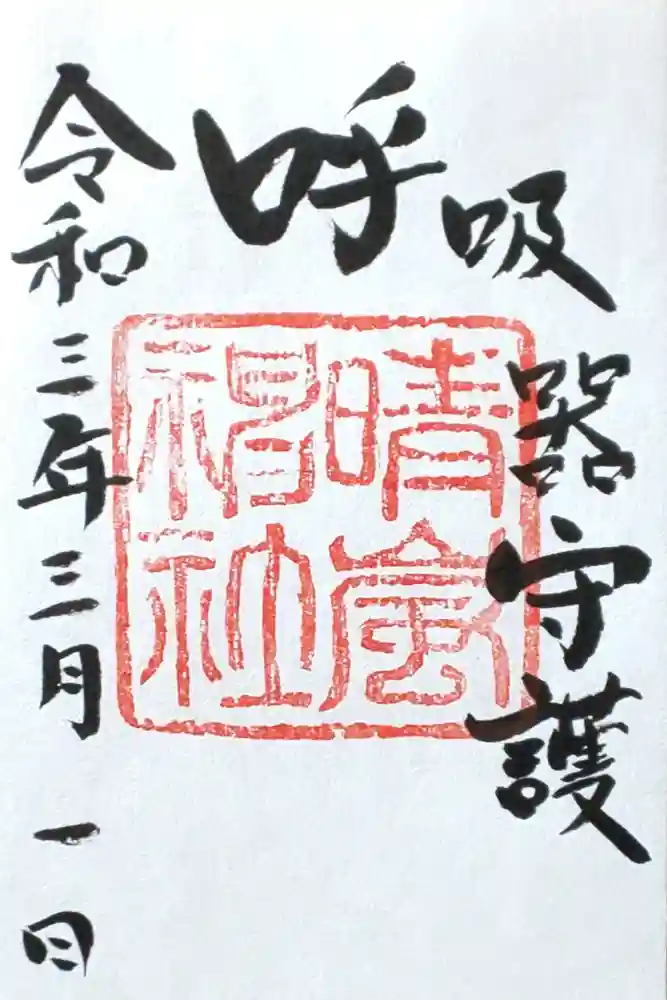 呼吸器守護
晴嵐
神社
令和三年三月一日